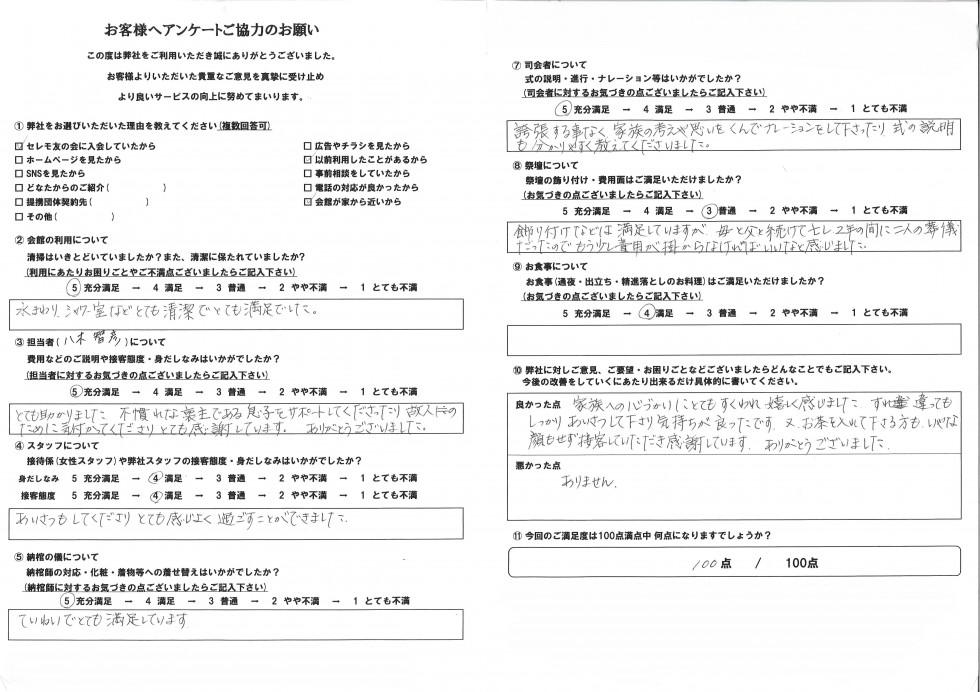 お客様へアンケートご協力のお願い
この度は弊社をご利用いただき誠にありがとうございました。
お客様よりいただいた貴重なご意見を真摯に受け止め
より良いサービスの向上に努めてまいります。
① 弊社をお選びいただいた理由を教えてください(複数回答可)
☑ セレモ友の会に入会していたから
□ ホームページを見たから
□ SNSを見たから
□ どなたからのご紹介( )
□ 提携団体契約先( )
□ その他( )
□ 広告やチラシを見たから
☑ 以前利用したことがあるから
□ 事前相談をしていたから
□ 電話の対応が良かったから
☑ 会館が家から近いから
② 会館の利用について
清掃はいきとどいていましたか？また、清潔に保たれていましたか？
(利用にあたりお困りごとやご不満点ございましたらご記入下さい)
⑤ 充分満足 → 4 満足 → 3 普通 → 2 やや不満 → 1 とても不満
水まわり、シャワー室などとても清潔でとても満足でした。
③ 担当者(八木 智彦)について
費用などのご説明や接客態度・身だしなみはいかがでしたか？
(担当者に対するお気づきの点ございましたらご記入下さい)
⑤ 充分満足 → 4 満足 → 3 普通 → 2 やや不満 → 1 とても不満
とても助かりました 不慣れな喪主である息子をサポートしてくださったり故人
ために気付かってくださりとても感謝しています。 ありがとうございました。
④ スタッフについて
接待係(女性スタッフ)や弊社スタッフの接客態度・身だしなみはいかがでしたか？
身だしなみ 5 充分満足 → ④ 満足 → 3 普通 → 2 やや不満 → 1 とても不満
接客態度 5 充分満足 → ④ 満足 → 3 普通 → 2 やや不満 → 1 とても不満
あいさつもしてくださりとても感じよく過ごすことができました。
⑤ 納棺の儀について
納棺師の対応・化粧・着物等への着せ替えはいかがでしたか？
(納棺師に対するお気づきの点ございましたらご記入下さい)
⑤ 充分満足 → 4 満足 → 3 普通 → 2 やや不満 → 1 とても不満
ていねいでとても満足しています
⑦ 司会者について
式の説明・進行・ナレーション等はいかがでしたか？
(司会者に対するお気づきの点ございましたらご記入下さい)
⑤ 充分満足 → 4 満足 → 3 普通 → 2 やや不満 → 1 とても不満
誇張する事なく家族の考えや思いをくんでナレーションをして下さったり 式の説明
も分かりやすく教えてくださいました。
⑧ 祭壇について
祭壇の飾り付け・費用面はご満足いただけましたか？
(お気づきの点ございましたらご記入下さい)
5 充分満足 → 4 満足 → ③ 普通 → 2 やや不満 → 1 とても不満
飾り付けなどは満足していますが 母と父と続けて亡くし2年の間に二人の葬儀
だったのでもう少し費用が掛からなければいいなと感じました。
⑨ お食事について
お食事(通夜・出立ち・精進落としのお料理)はご満足いただけましたか？
(お気づきの点ございましたらご記入下さい)
5 充分満足 → ④ 満足 → 3 普通 → 2 やや不満 → 1 とても不満
⑩ 弊社に対しご意見、ご要望・お困りごとなどございましたらどんなことでもご記入下さい。
今後の改善をしていくにあたり出来るだけ具体的に書いてください。
良かった点 家族への心づかいにとてもすくわれ嬉しく感じました すれ違っても
しっかりあいさつして下さり気持ちが良ったです。又、お茶を入れて下さる方も、いやな
顔もせず接客していただき感謝しています。 ありがとうございました。
悪かった点
ありません。
⑪ 今回のご満足度は100点満点中 何点になりますでしょうか？
100 点 / 100点